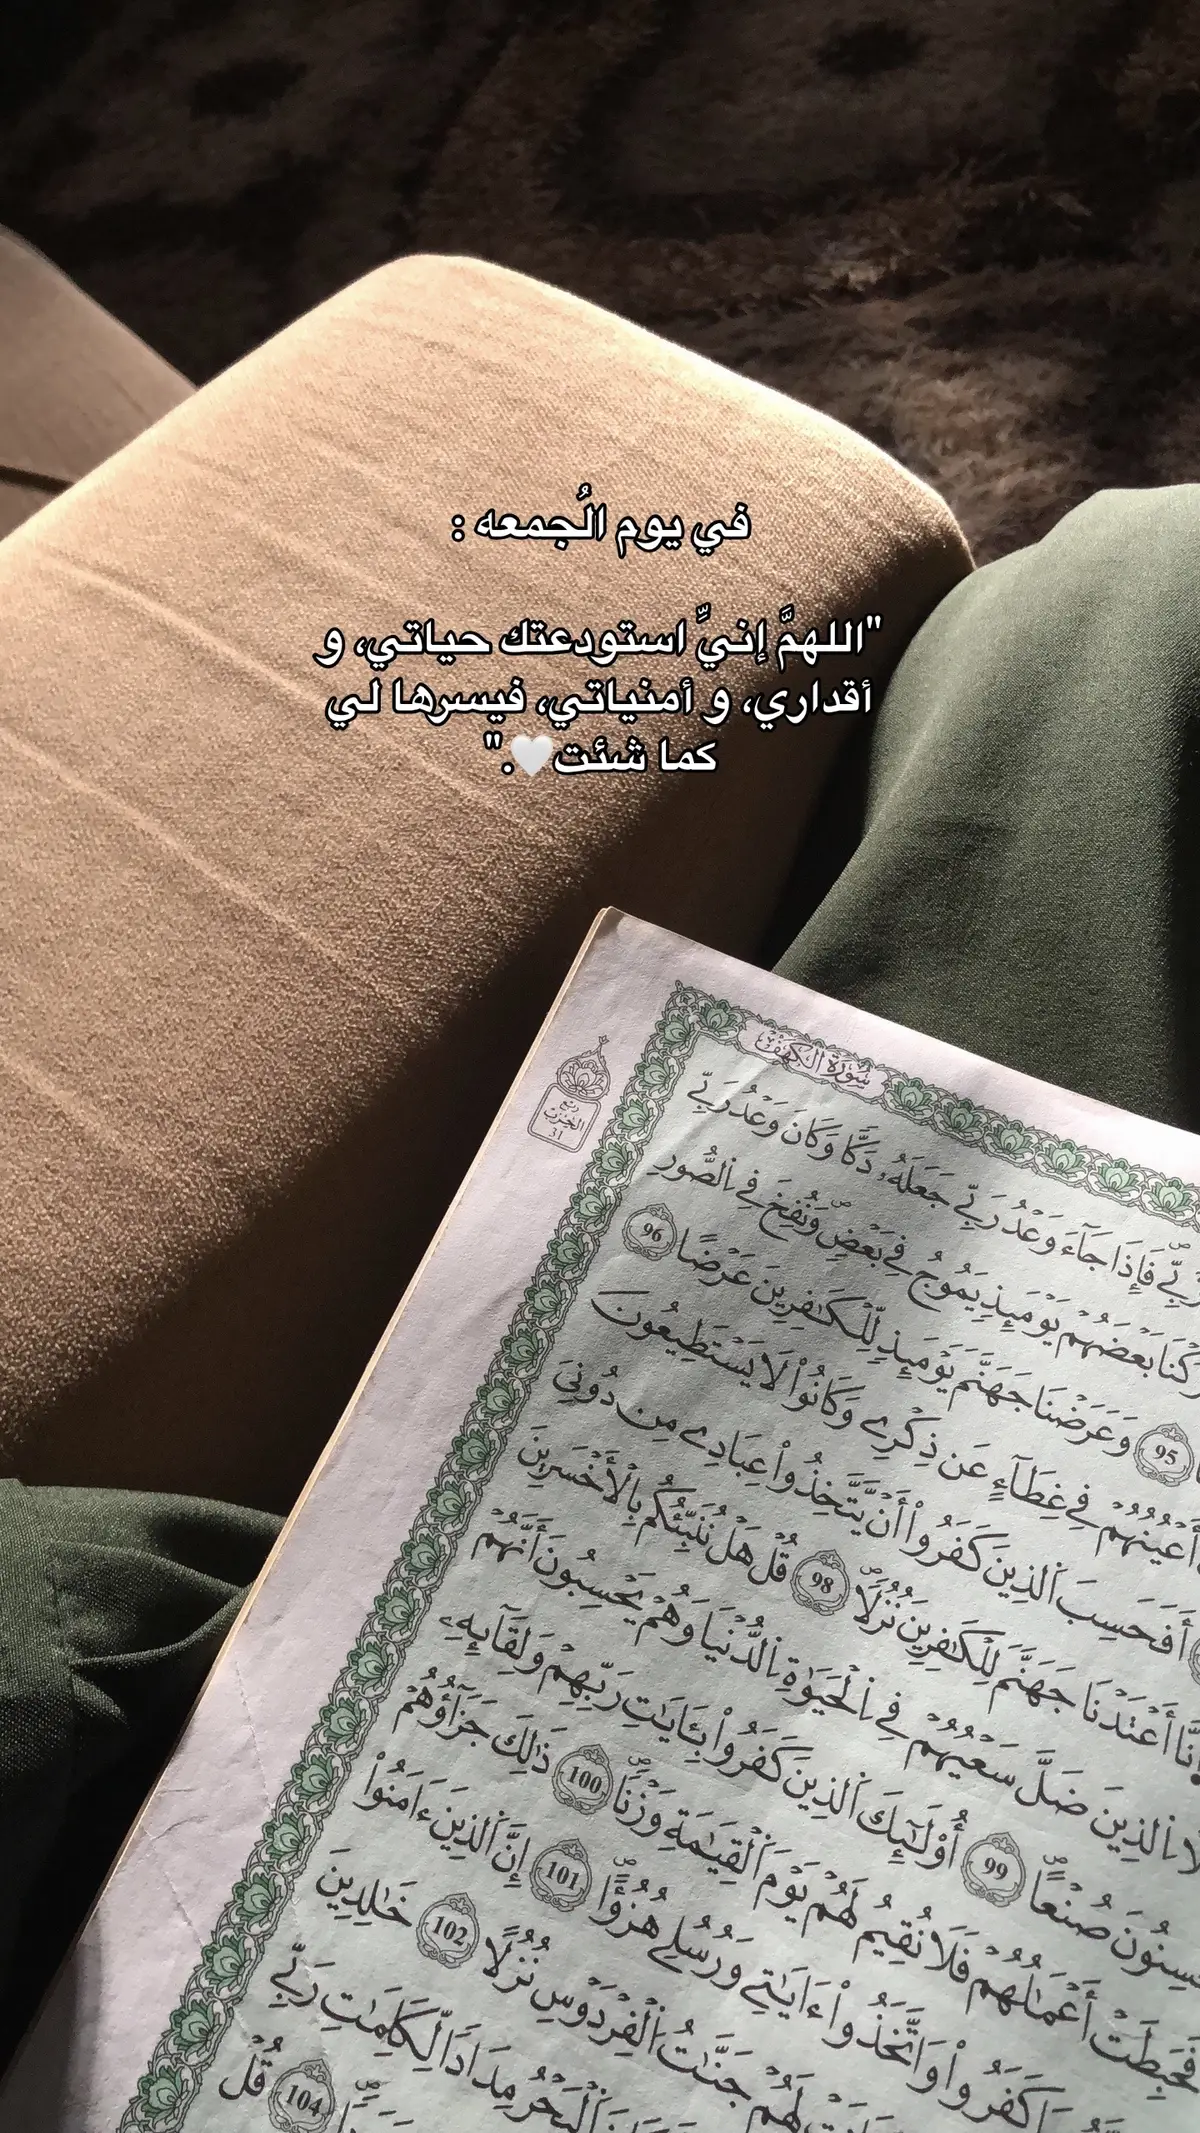 في يوم الُجمعه :
"اللهمَّ إنيِّ استودعتك حياتي، و
أقداري، و أمنياتي، فيسرها لي
كما شئت🤍."
سُورَةُ الكَهْفِ
ربع
الحزب
31
فَإِذَا جَآءَ وَعْدُ رَبِّے جَعَلَهُۥ دَكّٗا وَكَانَ وَعْدُ رَبِّے
بَعْضَهُمْ يَوْمَئِذٖ يَمُوجُ فِے بَعْضٖ وَنُفِخَ فِے اِ۬لصُّورِ
95 وَعَرَضْنَا جَهَنَّمَ يَوْمَئِذٖ لِّلْكَٰفِرِينَ عَرْضًا 96
أَعْيُنُهُمْ فِے غِطَآءٍ عَن ذِكْرِے وَكَانُواْ لَا يَسْتَطِيعُونَ
أَفَحَسِبَ اَ۬لذِينَ كَفَرُوٓاْ أَنْ يَّتَّخِذُواْ عِبَادِے مِن دُونِيَ
أَعْتَدْنَا جَهَنَّمَ لِلْكَٰفِرِينَ نُزُلٗا 98 قُلْ هَلْ نُنَبِّئُكُم بِالْأَخْسَرِينَ
اَ۬لذِينَ ضَلَّ سَعْيُهُمْ فِے اِ۬لْحَيَوٰةِ اِ۬لدُّنْيَا وَهُمْ يَحْسِبُونَ أَنَّهُمْ
صُنْعًا 99 أُوْلَٰٓئِكَ اَ۬لذِينَ كَفَرُواْ بِـَٔايَٰتِ رَبِّهِمْ وَلِقَآئِهِۦ
فَحَبِطَتْ أَعْمَٰلُهُمْ فَلَا نُقِيمُ لَهُمْ يَوْمَ اَ۬لْقِيَٰمَةِ وَزْنٗا 100 ذَٰلِكَ جَزَآؤُهُمْ
كَفَرُواْ وَاتَّخَذُوٓاْ ءَايَٰتِے وَرُسُلِے هُزُؤًا 101 إِنَّ اَ۬لذِينَ ءَامَنُواْ
لَهُمْ جَنَّٰتُ اُ۬لْفِرْدَوْسِ نُزُلًا 102 خَٰلِدِينَ
اَ۬لْبَحْرُ مِدَادٗا لِّكَلِمَٰتِ رَبِّے
104 قُلْ